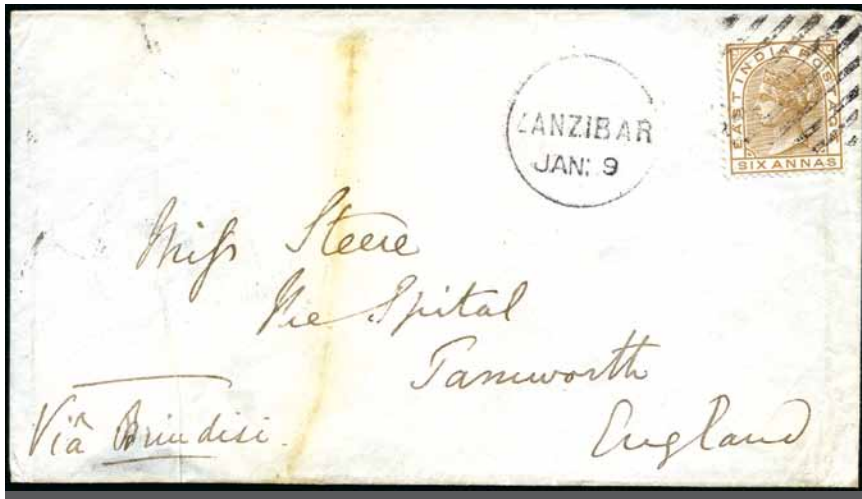 EAST INDIA POSTAGE
SIX ANNAS
ZANZIBAR
JAN: 9
Miss Steere
The Spital
Tamworth
England
Viâ Brindisi.